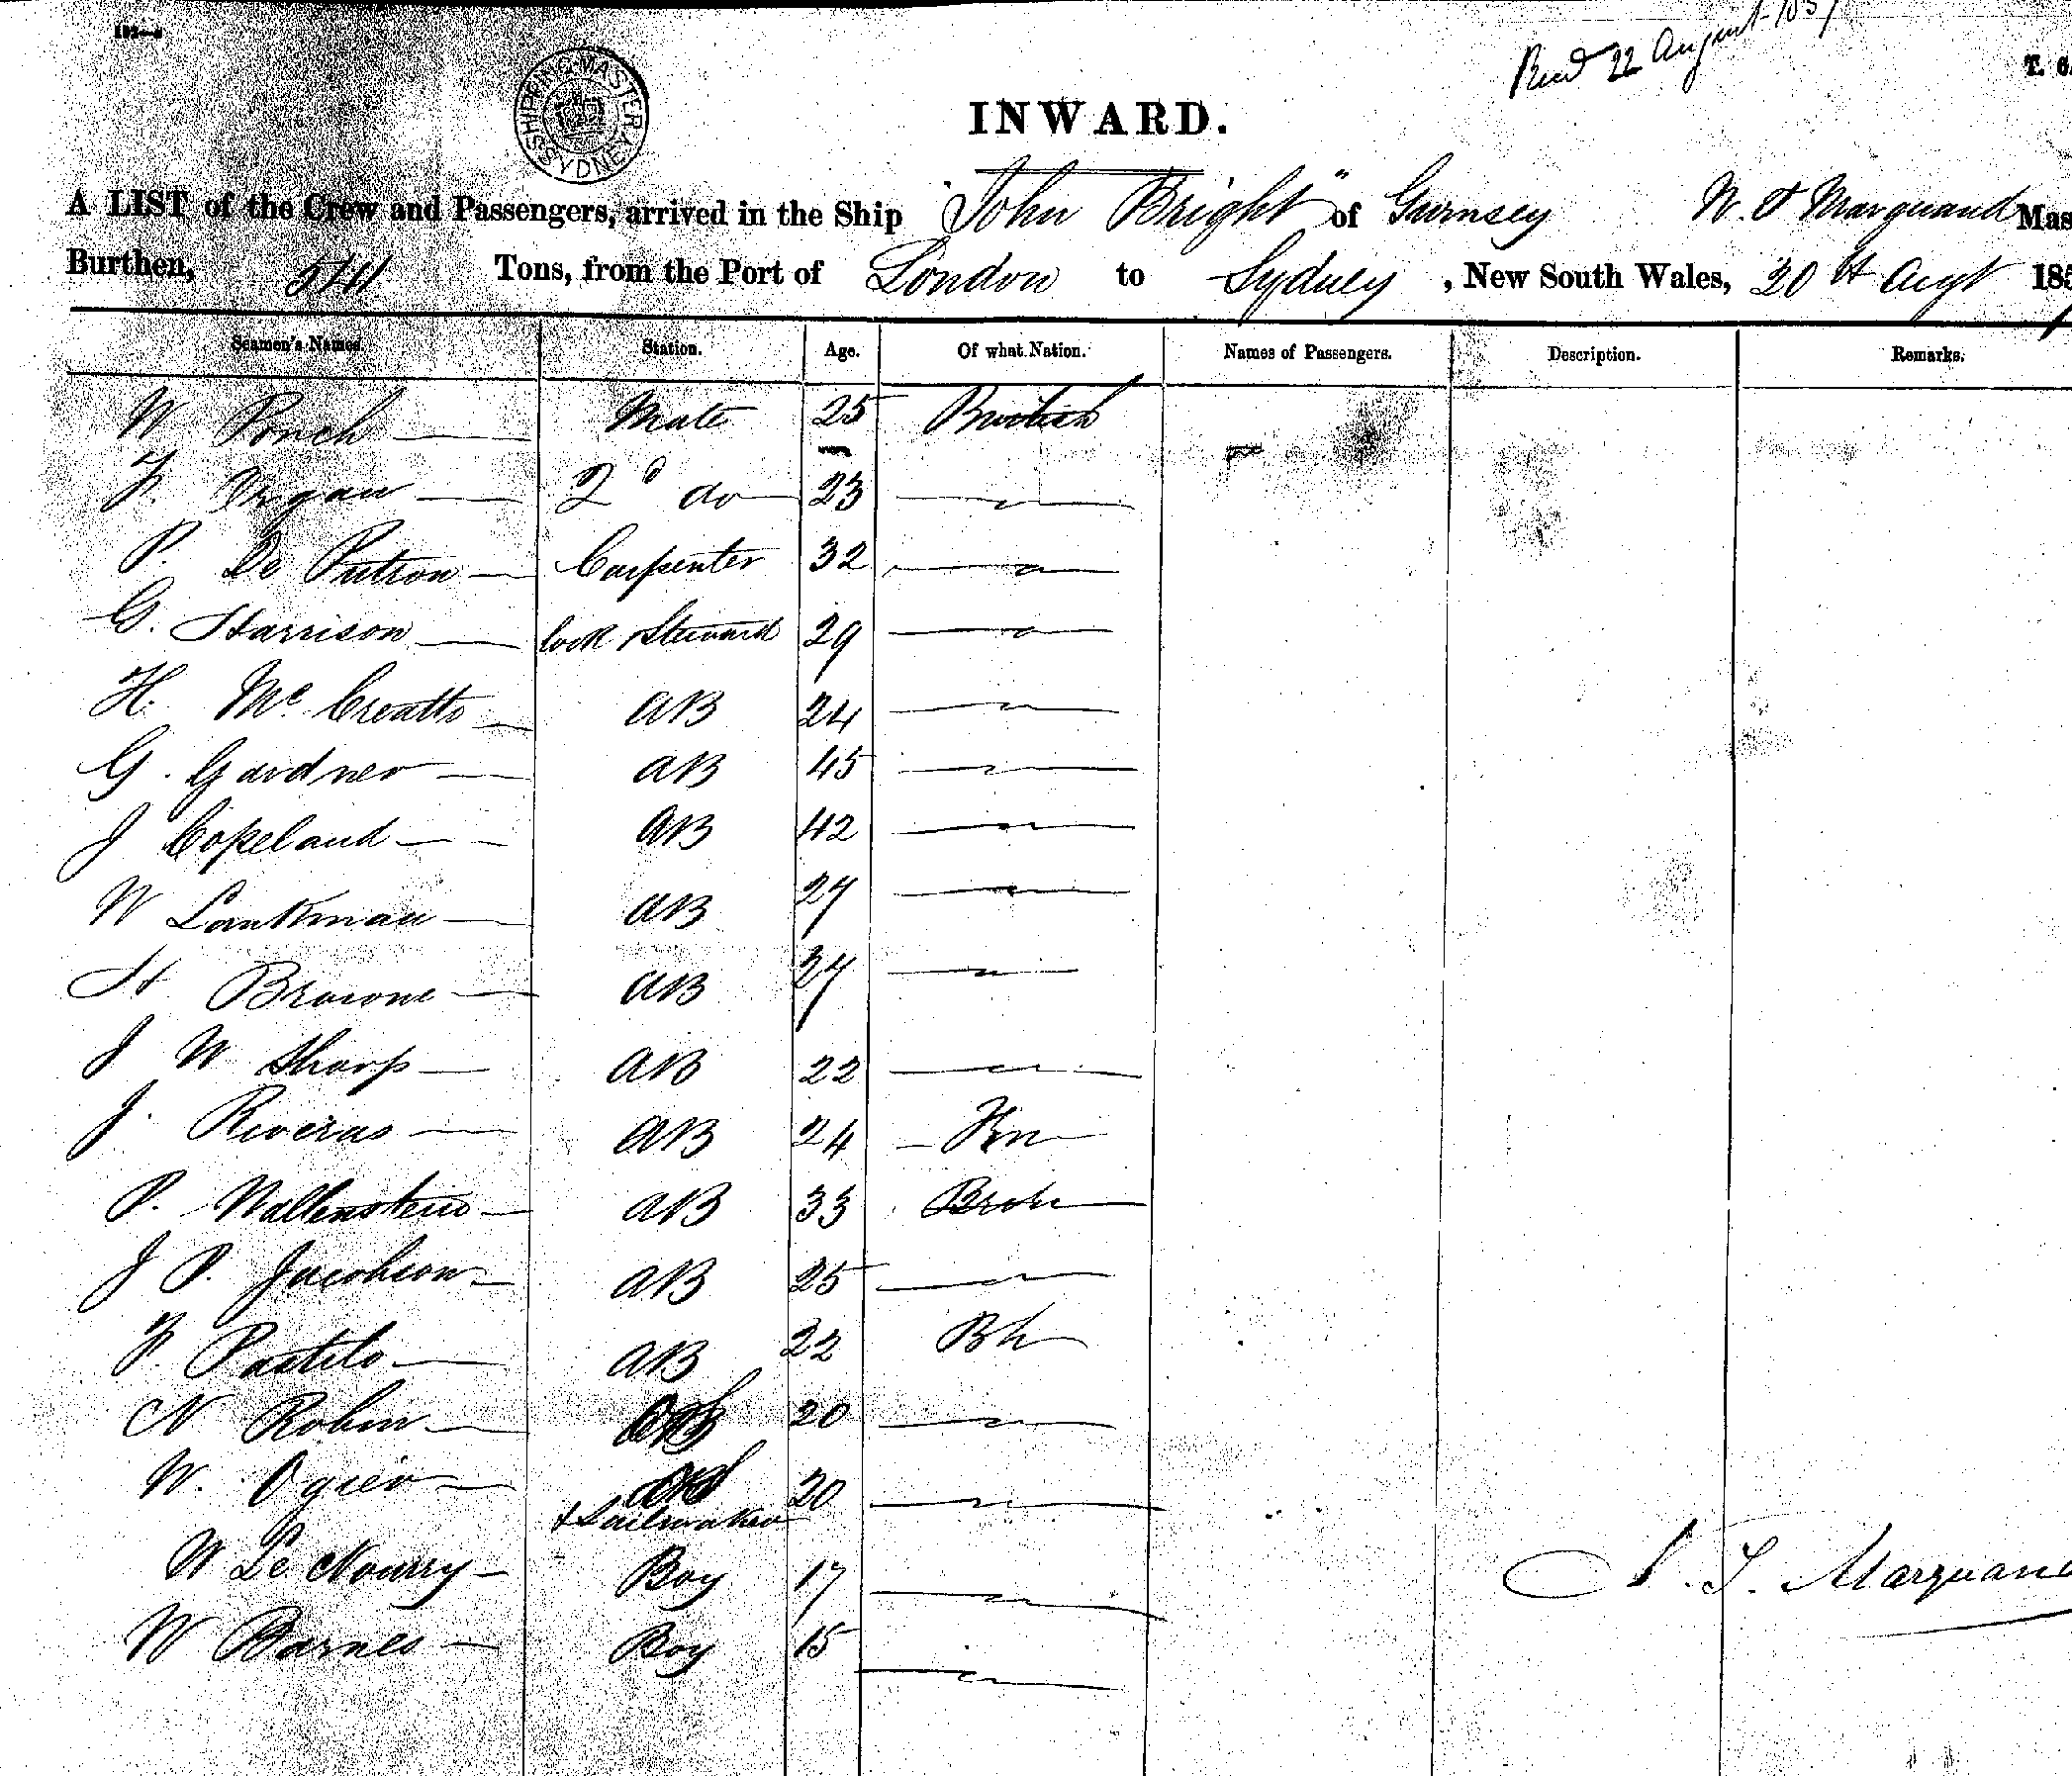 Recd 22 August 1857
SHIPPING MASTER SYDNEY
INWARD.
A LIST of the Crew and Passengers, arrived in the Ship "John Bright" of Gurnsey N. T Marquand Mas
Burthen, 541 Tons, from the Port of London to Sydney, New South Wales, 20th Augt 185
Seamen's Names. Station. Age. Of what Nation. Names of Passengers. Description. Remarks.
W Porch Mate 25 British
F. Organ 2d do 23
P. De Putron Carpenter 32
G. Harrison Cook Steward 29
H. Mc Creatto AB 24
G. Gardner AB 45
J Copeland AB 42
W Lankman AB 27
H Browne AB 27
J W Sharp AB 22
J. Riveras AB 24
P. Wallenstein AB 33
J P. Jacobson AB 25
F. Pastilo AB 22 Bh
N Robin 20
W. Ogier 20
+ Sailmaker
W Le Nourry Boy 17
W Barnes Boy 15
N. T. Marquand